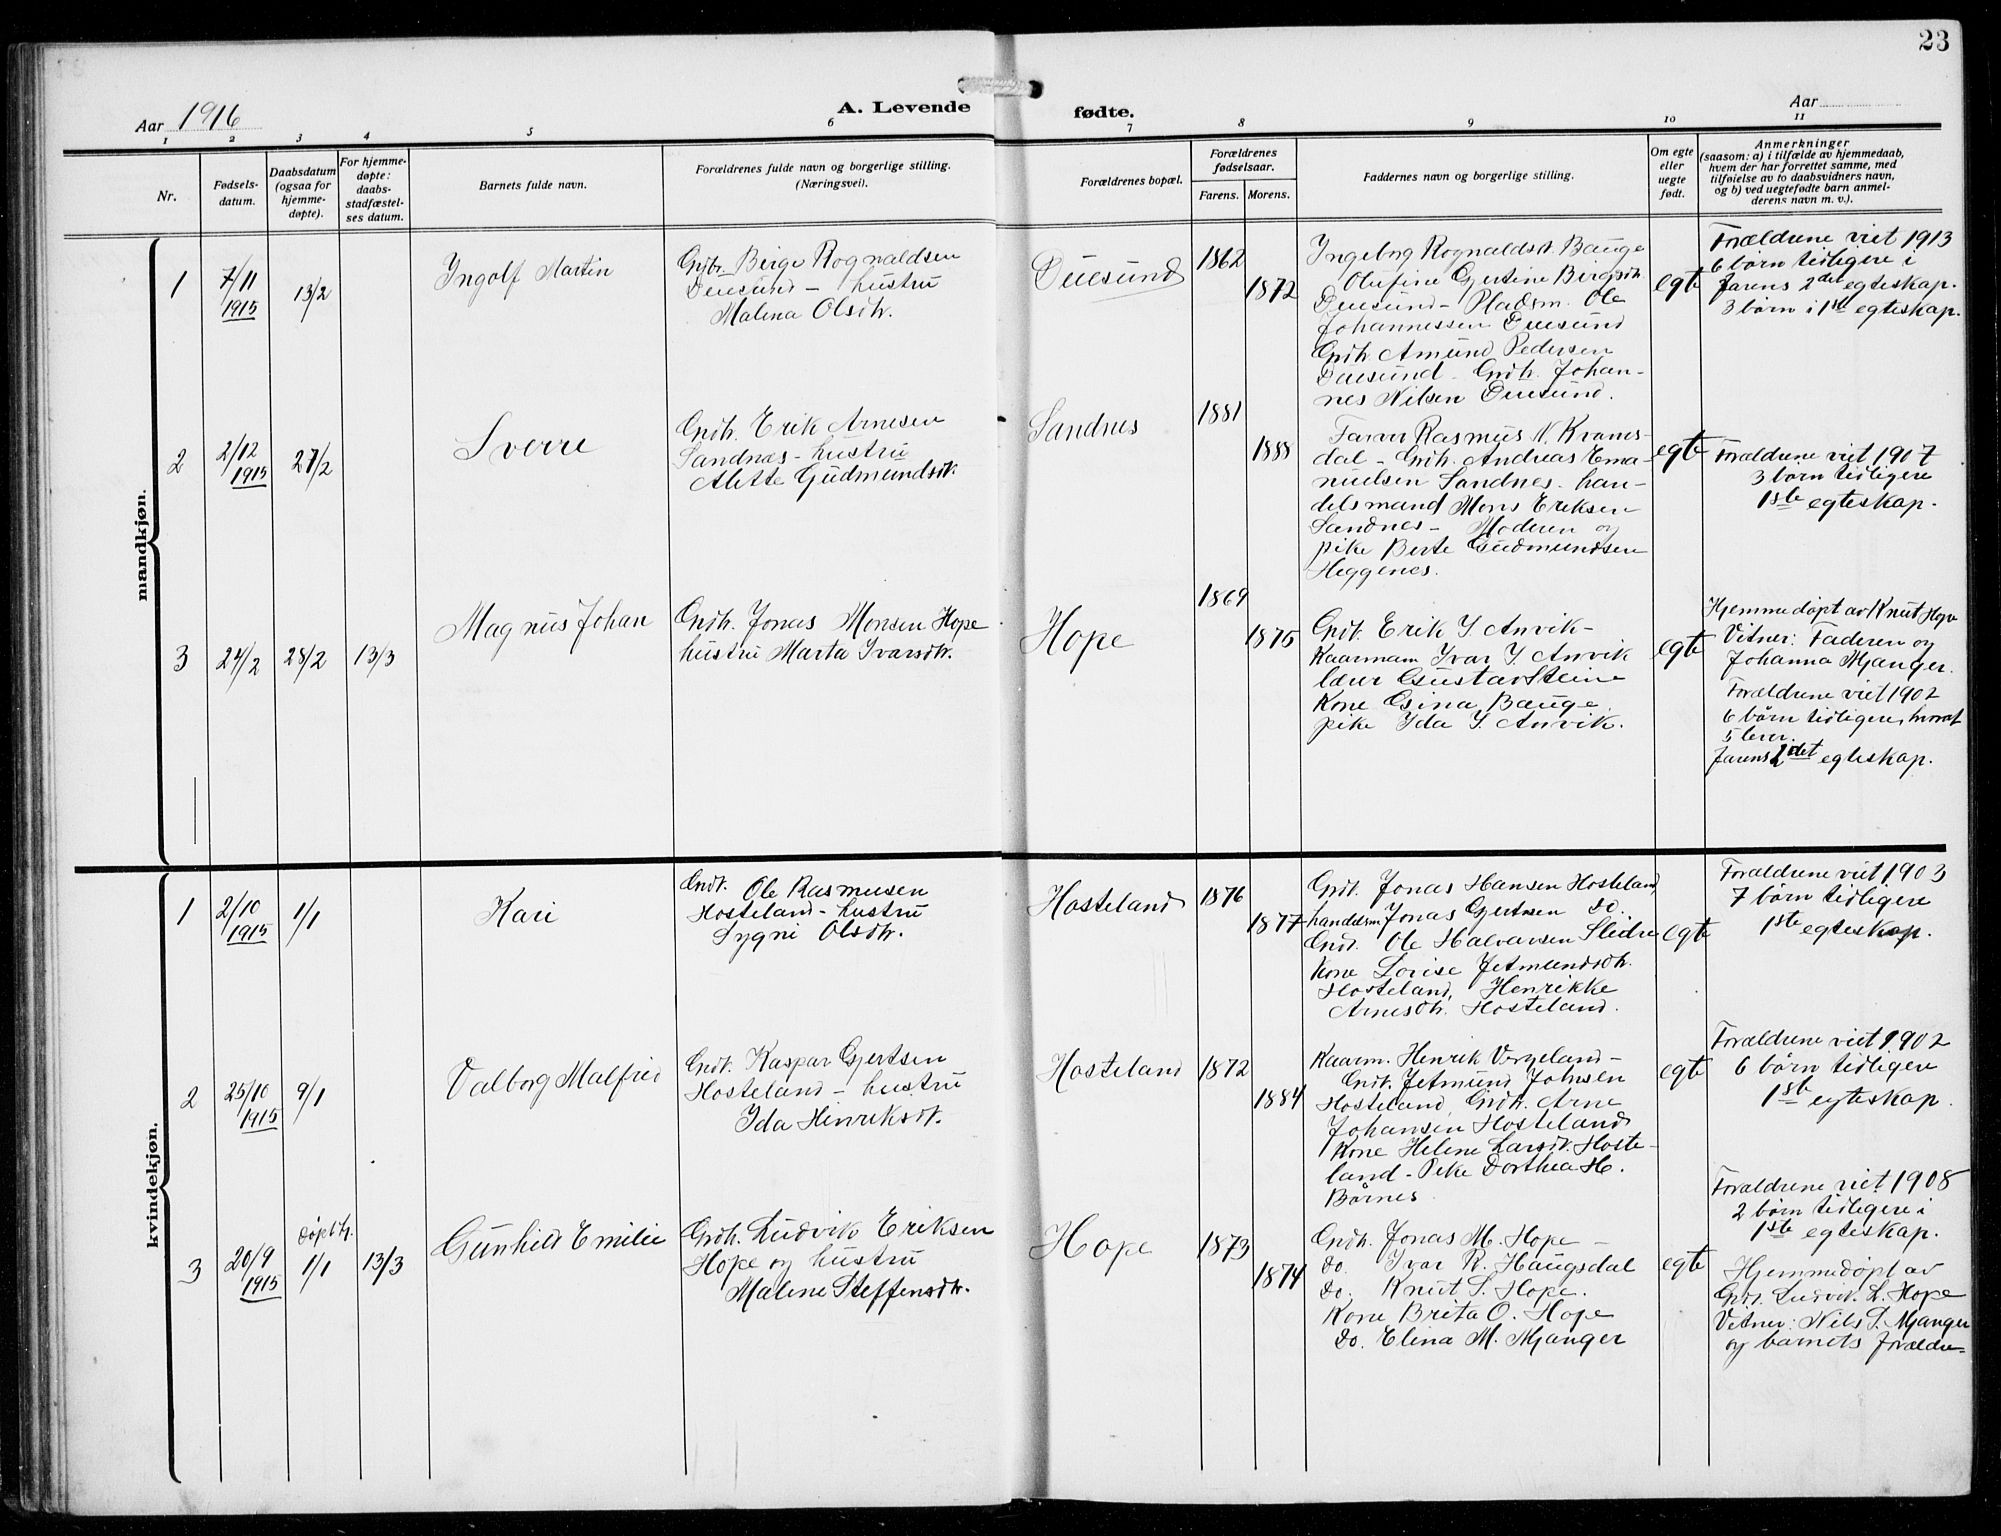 23
Aar 1916
A. Levende
fødte.
Aar
1 2 3 4 5 6 7 8 9 10 11
Nr.
Fødsels-
datum.
Daabsdatum
(ogsaa for
hjemme-
døpte).
For hjemme-
døpte:
daabs-
stadfæstel-
ses datum.
Barnets fulde navn.
Forældrenes fulde navn og borgerlige stilling.
(Næringsvei).
Forældrenes bopæl.
Forældrenes
fødselsaar.
Farens.
Morens.
Faddernes navn og borgerlige stilling.
Om egte
eller
uegte
født.
Anmerkninger
(saasom: a) i tilfælde av hjemmedaab,
hvem der har forrettet samme, med
tilføielse av to daabsvidners navn,
og b) ved uegtefødte barn anmel-
derens navn m. v.).
mandkjøn.
1
7/11
1915
13/2
Ingolf Martin
Børge Rognaldsen
Duesund - hustru
Malena Olsdtr.
Duesund
1862
1872
Ingeborg Rognaldsdt. Bauge
Olufine Gjertine Bergsdtr
Duesund - Pladsm. Ole
Johannessen Duesund
Grdbr. Amund Pedersen
Duesund - Grdbr. Johan-
nes Nilsen Duesund.
egte
Forældrene viet 1913
6 børn tidligere i
farens 2det egteskap.
3 børn i 1ste egteskap.
2
2/12
1915
27/2
Sverre
Grdbr. Erik Arnesen
Sandnes - hustru
Alette Gudmundsdt
Sandnes
1881
1888
Farver Rasmus N. Kvams-
dal - Grdbr. Andreas Ema
nuelsen Sandnes - han-
delsmand Mons Eriksen
Sandnes - Moderen og
pike Berte Gudmundsen
Heggenes.
egte
Forældrene viet 1907
3 børn tidligere
1ste egteskap.
3
24/2
28/2
13/3
Magnus Johan
Grdbr. Jonas Monsen Hope
hustru Marta Ivarsdtr.
Hope
1869
1875
Grdbr. Erik I. Anvik -
Kaarmann Ivar I. Anvik
lærer Gustav Steine
Kone Gina Bauge.
pike Ida I. Anvik.
egte
Hjemmedøpt av Knut Hope
Vitner: Faderen og
Johanna Mjanger.
Forældrene viet 1902
6 børn tidligere, hvorav
5 lever.
farens 2det egteskap.
kvindekjøn.
1
2/10
1915
1/1
Kari
Grdbr. Ole Rasmusen
Hosteland - hustru
Sygni Olsdtr.
Hosteland
1876
1877
Grdbr. Jonas Hansen Hosteland
handelsm Jonas Gjertsen do.
Grdbr. Ole Halvorsen Sleire
Kone Lovise Jetmundsdtr.
Hosteland, Henrikke
Arnesdtr. Hosteland.
egte
Forældrene viet 1903
7 børn tidligere
1ste egteskap.
2
25/10
1915
9/1
Valborg Malfrid
Grdbr. Kaspar Gjertsen
Hosteland - hustru
Ida Henriksdt.
Hosteland
1872
1884
Kaarm. Henrik Vergeland -
Grdbr. Jetmund Johnsen
Hosteland, Grdbr. Arne
Johansen Hosteland
Kone Helene Larsdt. Hoste-
land - Pike Dorthea H.
Børnes
egte
Forældrene viet 1902
6 børn tidligere
1ste egteskap.
3
20/9
1915
døpt hj.
1/1
13/3
Gunhild Emilie
Grdbr. Ludvik Eriksen
Hope og hustru
Malene Steffensdtr.
Hope
1873
1874
Grdbr. Jonas M. Hope -
do. Ivar R. Haugsdal
do. Knut S. Hope.
Kone Brita O. Hope
do. Elina M. Mjanger
egte
Forældrene viet 1908
2 børn tidligere i
1ste egteskap.
Hjemmedøpt av
Grdbr. Ludvik L. Hope
Vitner: Nils S. Mjanger
og barnets forældre